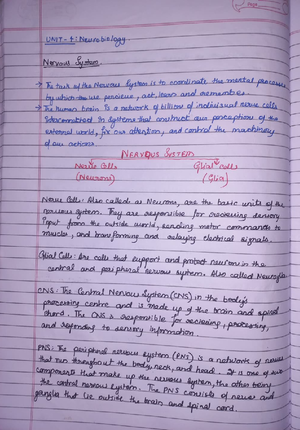 UNIT - 1: Neurobiology
Nervous System
→ The task of the Nervous System is to coordinate the mental processes
by which we perceive, act, learn and remember.
→ The human brain is a network of billions of individual nerve cells
interconnected in systems that construct our perceptions of the
external world, fix our attention, and control the machinery
of our actions.
NERVOUS SYSTEM
Nerve Cells Glial cells
(Neurons) (Glia)
Nerve Cells: Also called as Neurons, are the basic units of the
nervous system. They are responsible for receiving sensory
input from the outside world, sending motor commands to
muscles, and transforming and relaying electrical signals.
Glial Cells: Are cells that support and protect neurons in the
central and peripheral nervous system. Also called Neuroglia
CNS: The Central Nervous System (CNS) is the body's
processing centre and is made up of the brain and spinal
chord. The CNS is responsible for receiving, processing,
and responding to sensory information.
PNS: The peripheral nervous system (PNS) is a network of nerves
that run throughout the body, neck, and head. It is one of two
components that make up the nervous system, the other being
the central nervous system. The PNS consists of nerves and
ganglia that lie outside the brain and spinal cord.